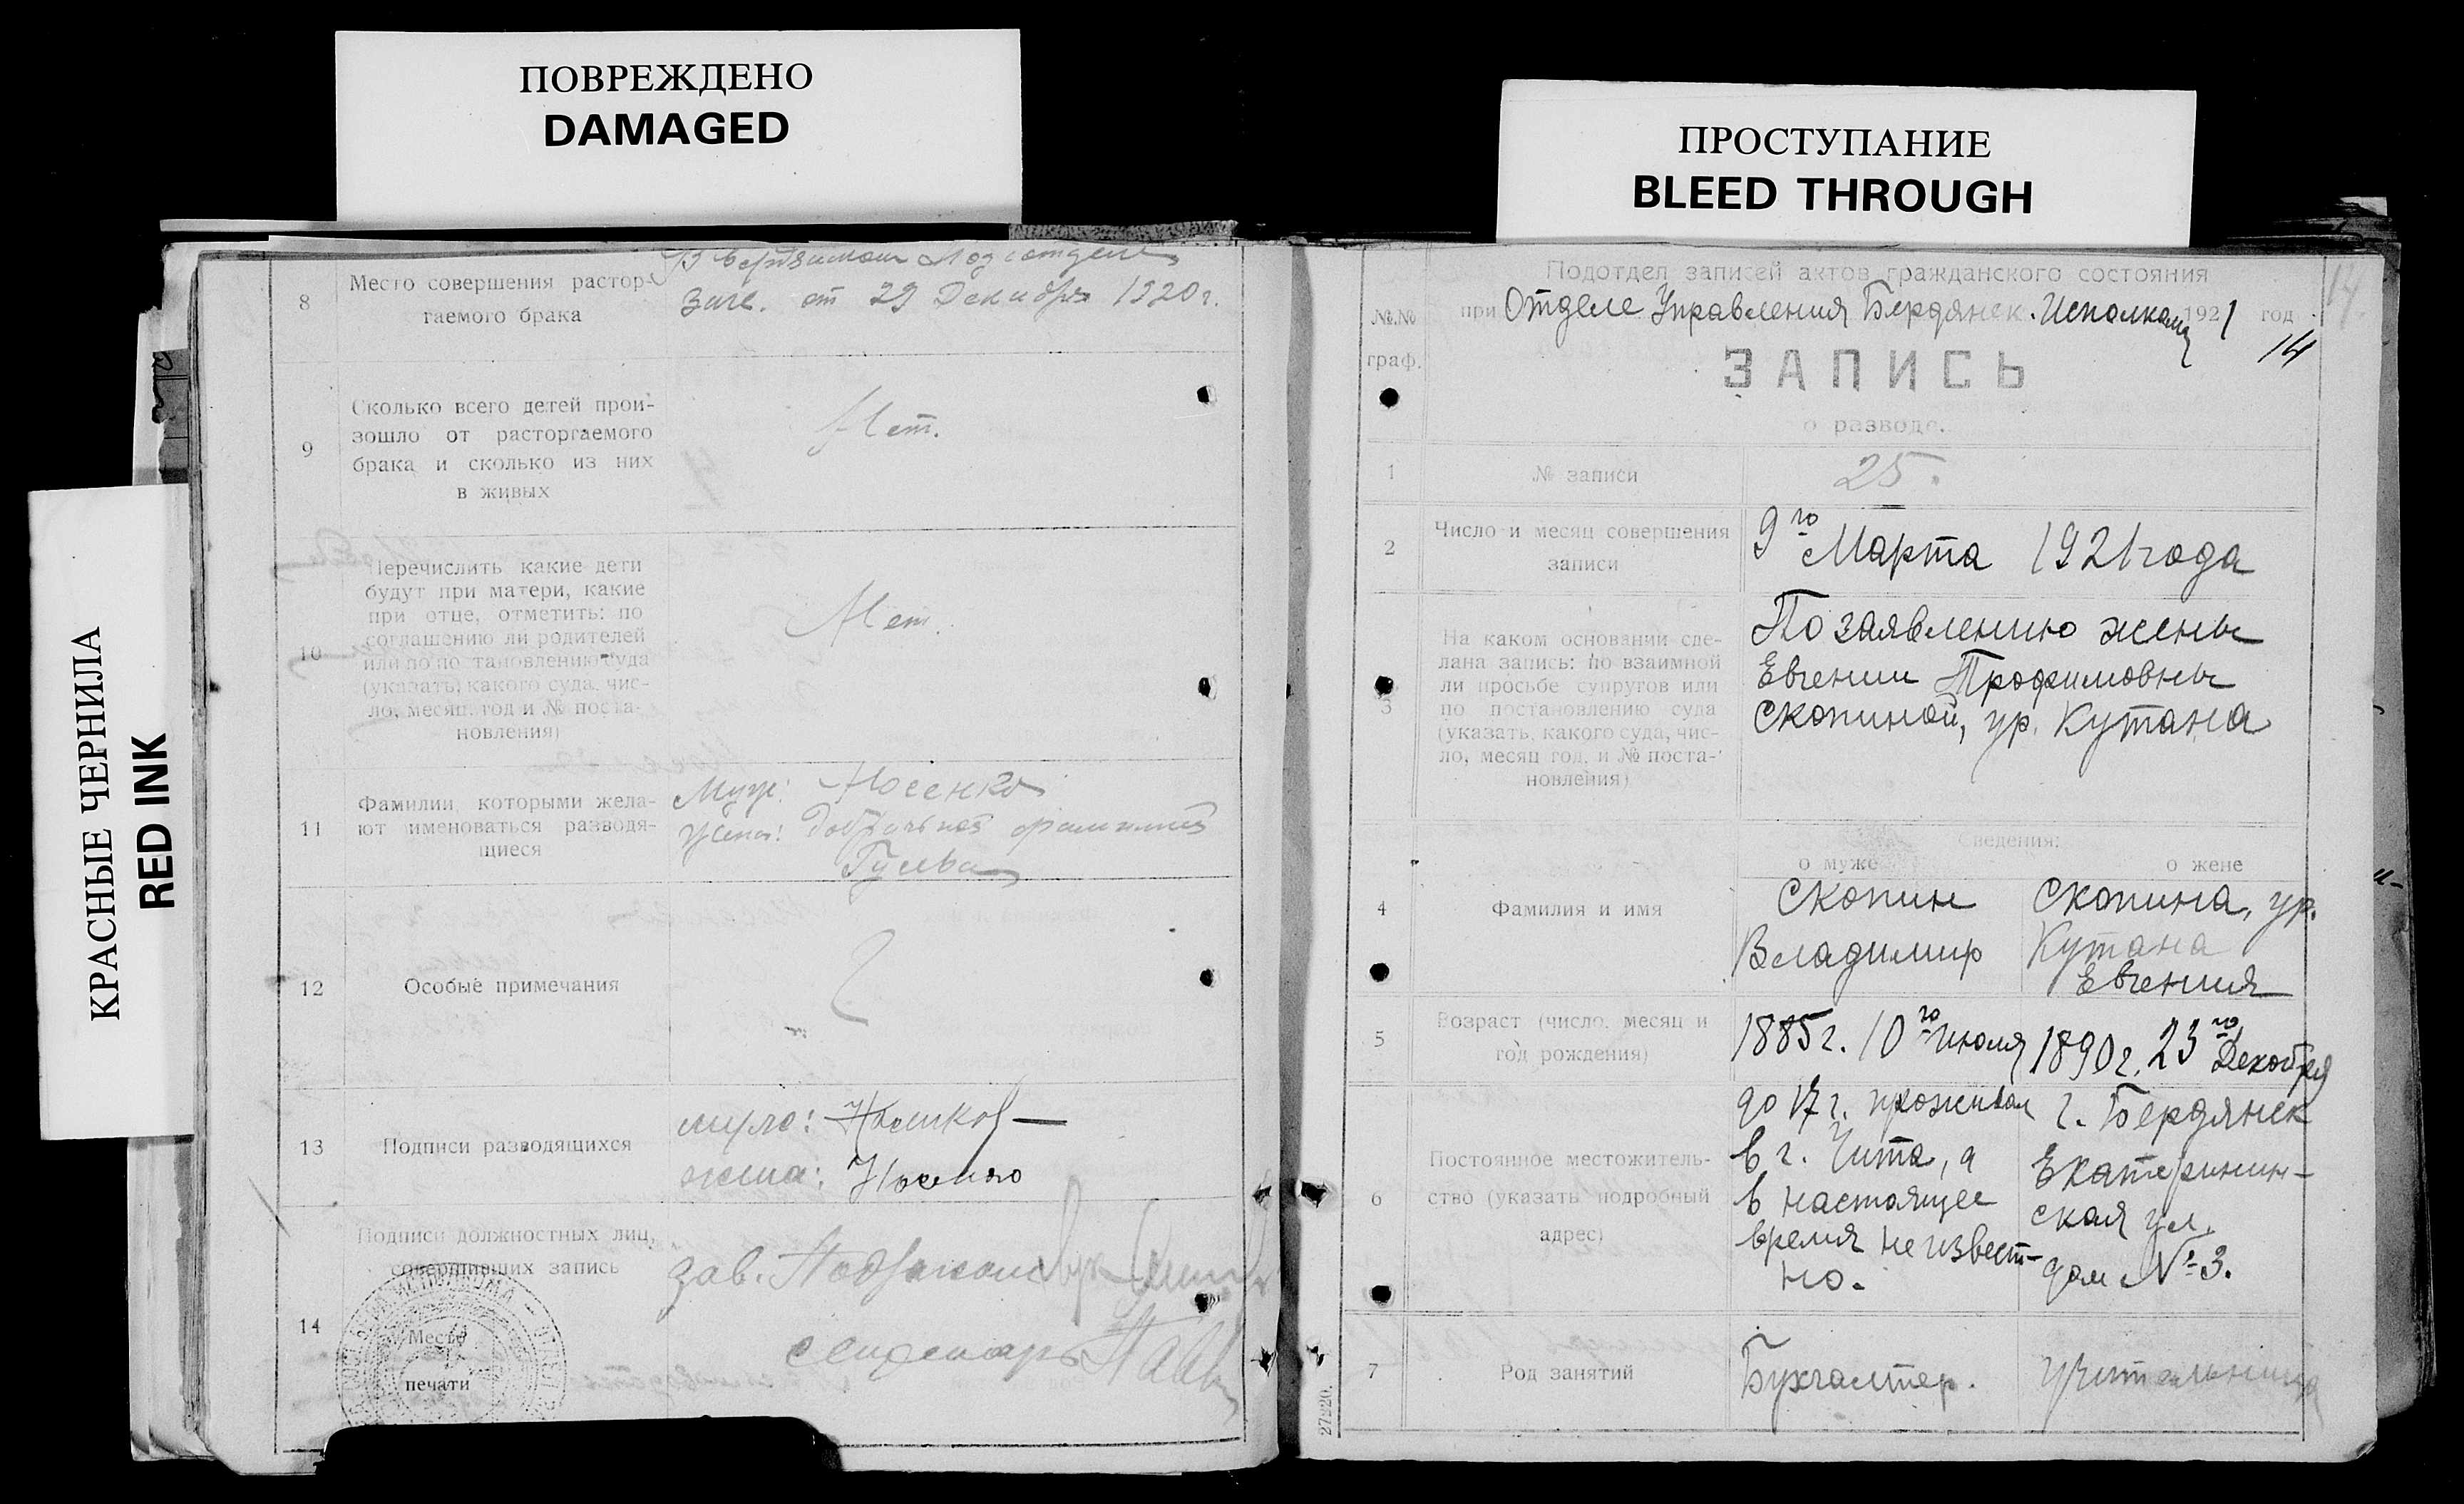 ПОВРЕЖДЕНО
DAMAGED
ПРОСТУПАНИЕ
BLEED THROUGH
КРАСНЫЕ ЧЕРНИЛА
RED INK
8
Место совершения растор-
гаемого брака
от 29 Декабря 1920 г.
9
Сколько всего детей прои-
зошло от расторгаемого
брака и сколько из них
в живых
Нет.
10
Перечислить какие дети
будут при матери, какие
при отце, отметить: по
соглашению ли родителей
или по по тановлению суда
(указать) какого суда, чис-
ло, месяц, год и № поста-
новления)
Нет.
11
Фамилии, которыми жела-
ют именоваться разводя-
щиеся
Муж: Носенко
Жена: Добрачной фамилией
Гусева
12
Особые примечания
13
Подписи разводящихся
жена: Носенко
14
Подписи должностных лиц,
совершивших запись
Место
печати
зав.
секретарь
Подотдел записей актов гражданского состояния
при Отделе Управления Бердянск. Исполкома 1921 год
14
№№
граф.
ЗАПИСЬ
о разводе.
1
№ записи
25.
2
Число и месяц совершения
записи
9го Марта 1921 года
3
На каком основании сде-
лана запись: по взаимной
ли просьбе супругов или
по постановлению суда
(указать, какого суда, чис-
ло, месяц год, и № поста-
новления)
По заявлению жены
Евгении Трофимовны
Скопиной, ур. Кутана
Сведения:
о муже
о жене
4
Фамилия и имя
Скопин
Владимир
Скопина, ур.
Кутана
Евгения
5
Возраст (число, месяц и
год рождения)
1885 г. 10го Июля
1890 г. 23го Декабря
6
Постоянное местожитель-
ство (указать подробный
адрес)
до 17 г. проживал
в г. Чита, а
в настоящее
время не извест-
но.
г. Бердянск
Екатеринин-
ская ул.
дом № 3.
7
Род занятий
Бухгалтер.
учительница
27220.